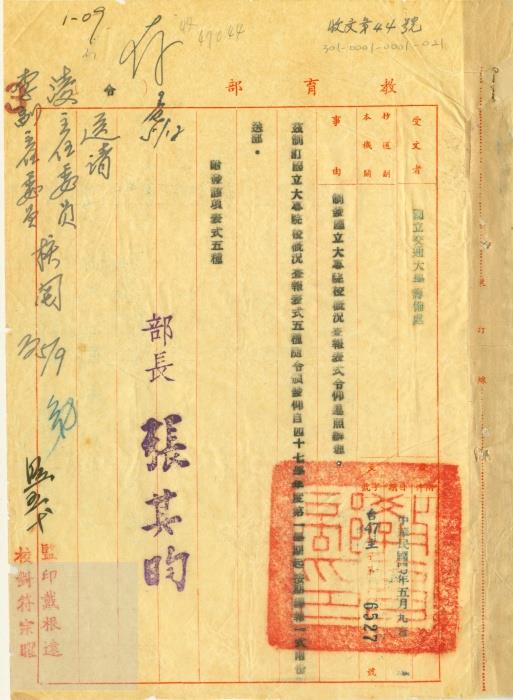 收文章44號
301-0001-0001-021
47044
1-09
存
教育部
令
受文者
國立交通大學籌備處
抄送副本機關
事由
制發國立大專院校概況查報表式令仰遵照辦理。
中華民國47年五月九日
台47
6527
號
茲制訂國立大專院校概況查報表式五種隨令頒發仰自四十七學年度第一學期起按期填報一式兩份
送部。
附發該項表式五種
部長 張其昀
送請
凌主任委員
李副主任委員 核閱
5/9
監印戴根遠
校對符宗曜
裝訂線